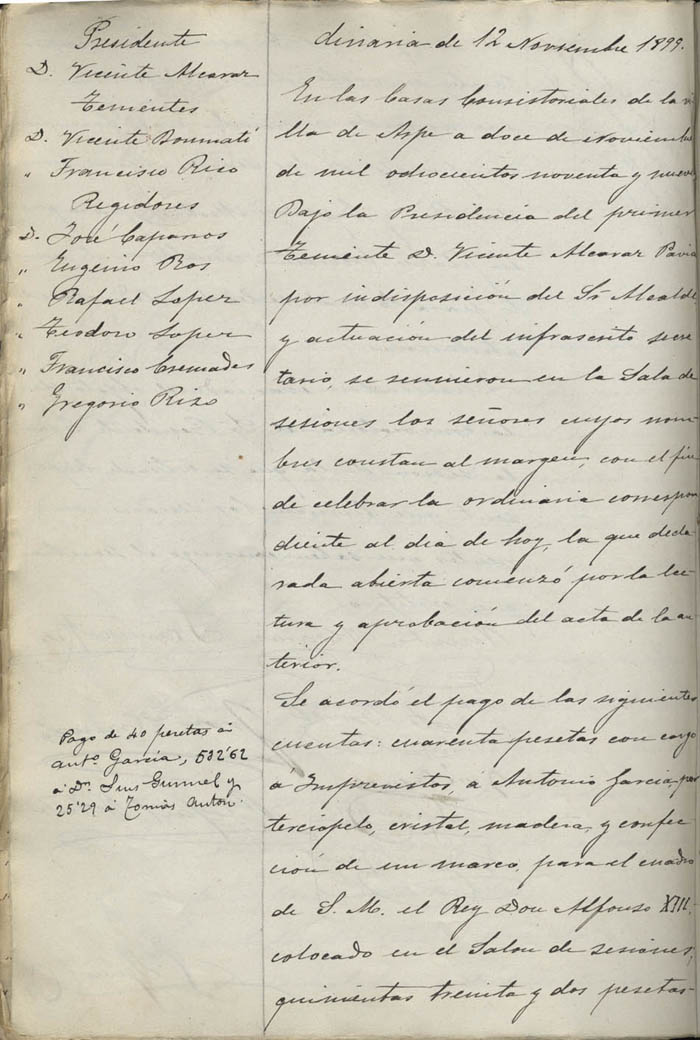 Presidente
D. Vicente Alcaraz
Tenientes
D. Vicente Bonmatí
" Francisco Rico
Regidores
D. José Caparros
" Eugenio Ros
" Rafael Lopez
" Teodoro Lopez
" Francisco Cremades
" Gregorio Rizo
Pago de 40 pesetas á
Antº García, 532'62
á Dn. Luis Gummel y
25'29 á Tomás Antón.
dinaria de 12 Noviembre 1899.
En las Casas Consistoriales de la vi
lla de Aspe a doce de Noviembre
de mil ochocientos noventa y nueve
Bajo la Presidencia del primer
Teniente D. Vicente Alcaraz Pavia
por indisposición del Sr. Alcalde
y actuación del infrascrito secre
tario, se reunieron en la Sala de
sesiones los señores cuyos nom
bres constan al margen, con el fin
de celebrar la ordinaria correspon
diente al dia de hoy, la que decla
rada abierta comenzó por la lec
tura y aprobación del acta de la an
terior.
Se acordó el pago de las siguientes
cuentas: cuarenta pesetas con cargo
á Imprevistos, á Antonio Garcia, por
terciopelo, cristal, madera, y confec
ción de un marco, para el cuadro
de S. M. el Rey Don Alfonso XIII,
colocado en el Salon de sesiones;
quinientas treinta y dos pesetas-